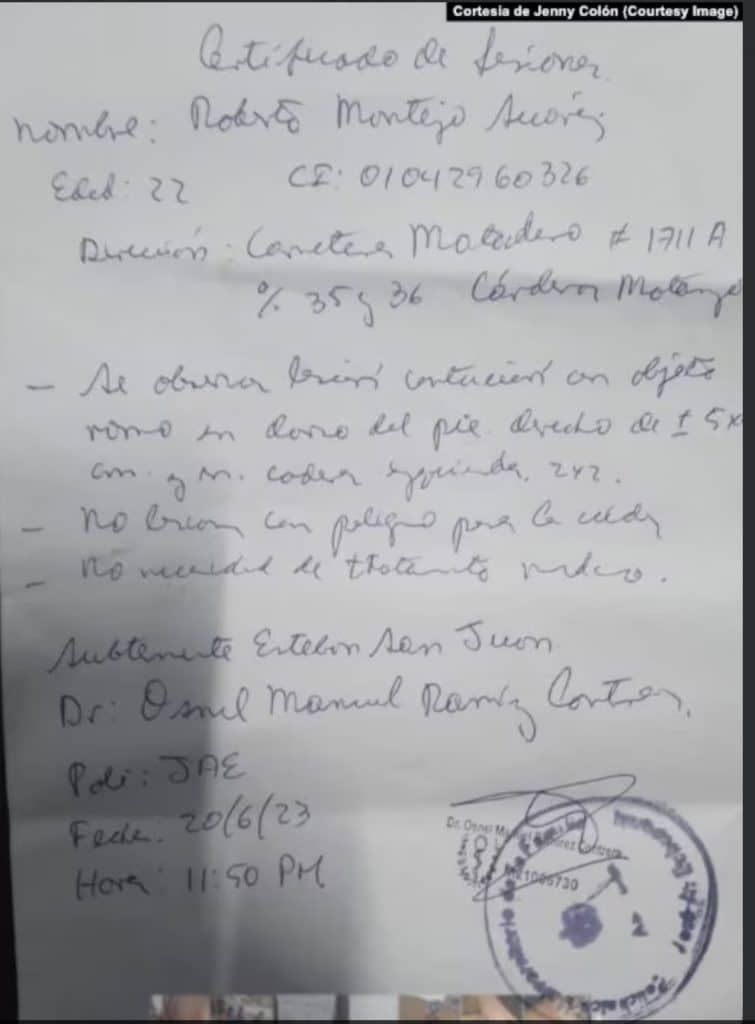 Cortesía de Jenny Colón (Courtesy Image)
Certificado de Lesiones
nombre: Roberto Montejo Suárez
Edad: 22 CI: 01042960326
Dirección: Carretera Matadero # 1711 A
% 35 y 36 Cárdenas Matanza
- Se observa lesión contusión con objeto
romo en dorso del pie derecho de ± 5x
cm y en cadera izquierda 2x2.
- No lesiones con peligro para la vida
- No necesidad de tratamiento médico.
Subteniente Esteban San Juan
Dr: Osnel Manuel Ramírez Contreras.
Poli: JAE
Fecha: 20/6/23
Hora: 11:50 PM
Dr. Osnel